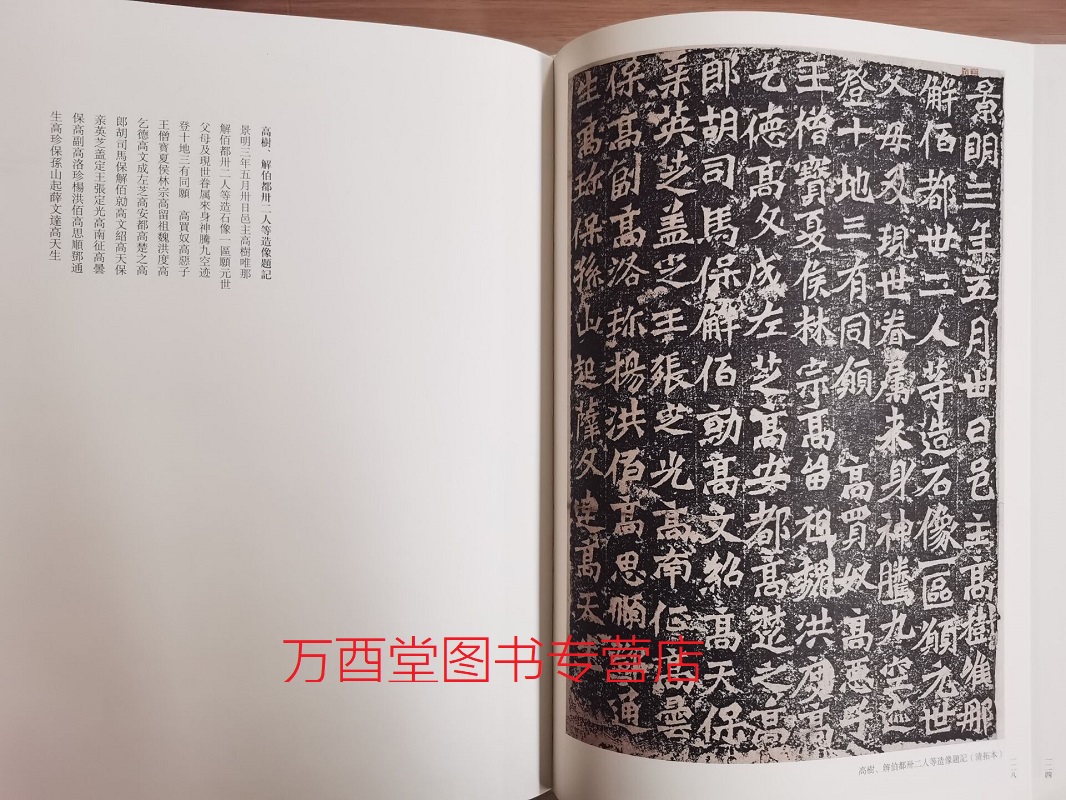 景明三年五月卅日邑主高樹唯那
解佰都卅二人等造石像一區願元世
父母及現世眷屬来身神騰九空迹
登十地三有同願 高買奴高惡子
王僧寳夏侯林宗高留祖魏洪度高
乞德高文成左芝高安都高楚之高
郎胡司馬保解佰勍高文紹高天保
亲英芝盖定王張定光高南征高曇
保高副高洛珍楊洪佰高思順鄧通
生高珍保孫山起薛文達高天生
高樹、解伯都卅二人等造像題記（清拓本）
一二八
一二四
高樹、解伯都卅二人等造像題記
景明三年五月卅日邑主高樹唯那
解佰都卅二人等造石像一區願元世
父母及現世眷属来身神騰九空迹
登十地三有同願 高買奴高惡子
王僧寳夏侯林宗高留祖魏洪度高
乞德高文成左芝高安都高楚之高
郎胡司馬保解佰勍高文紹高天保
亲英芝盖定王張定光高南征高曇
保高副高洛珍楊洪佰高思順鄧通
生高珍保孫山起薛文達高天生
万酉堂图书专营店